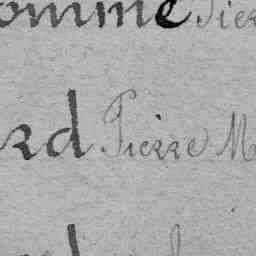 omme Pier
rd Pierre M